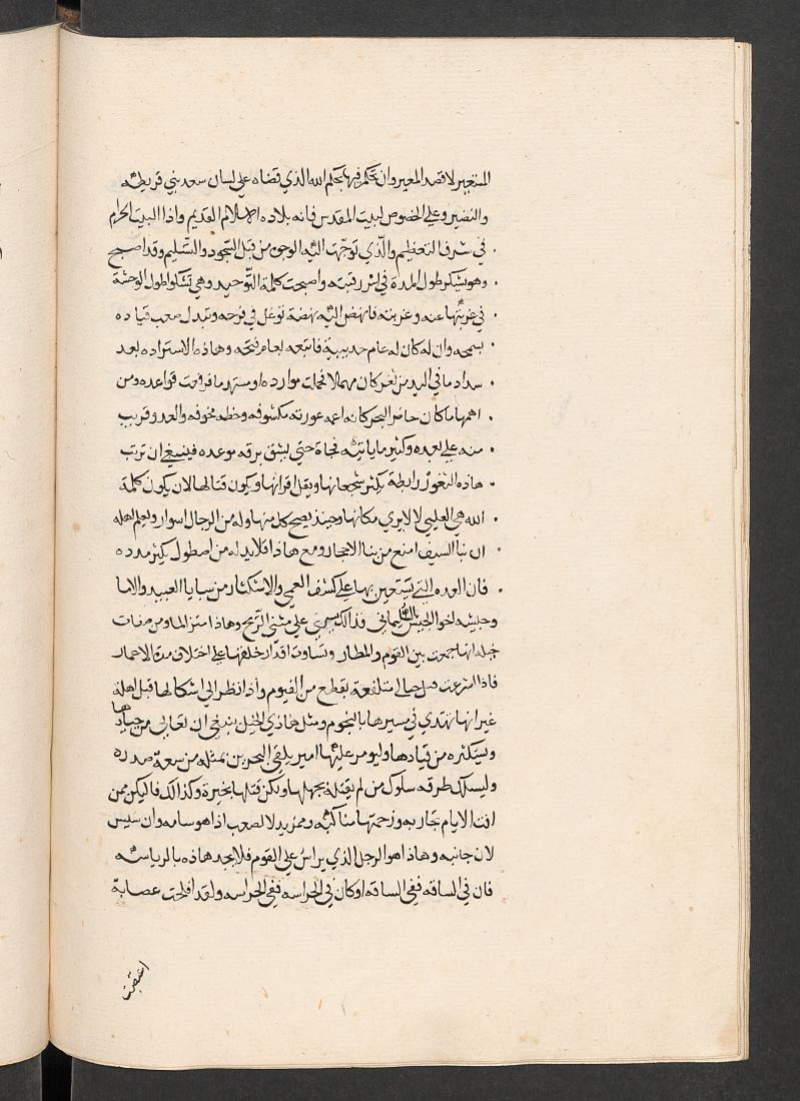 المتغير لا قصد المعير وان تحكم فيها بحكم الله الذي قضاه على لسان سعد بني قريظه
والنضير وعلى الخصوص لبيت المقدس فانه بلاده الاسلام القديم واذا البيت الحرام
في شرف التعظيم والذي توجهت اليه الوجوه من قبل السجود والتسليم وقد اصبح
وهو يشكو طول المدة في اسر رقبته واصبحت كلمة التوحيد وهي تشكوا طول الوحشة
في غربتها عنه وغربته فانهض اليه نهضة توغل في فرحه وتبدل صعب قياده
بسمحه وان له كان له عام حديبية فاتبعه بعام فتحه وهاذه الاستزاده بعد
سداد ما في اليد من ثغر كان مهملا موارده او مستهد ما فرفعت قواعده ومن
اهمها ما كان حاضر البحر كانه عورته مكشوفه وخطه مخوفه والعدو قريب
منه على بعده وكثير ما ياتيه فجاة حتى يشق برقه بوعده فينبغي ان ترتب
هاذه الثغور رابطة يكثر شجعانها ويقل اقرانها ويكون قتالها لان يكون كلمة
الله هي العليى لا لا يرى مكانها وحينئذ يصبح كل منها وله من الرجال اسوار ويعلم اهله
ان بنا السيف امنع من بنا الاحجار ومع هاذا فلابد له من اصطول يكثر مدده
فان العده التي تستعين بها على كشف العمى والاستكثار من سبايا العبيد والاما
وجيشه اخو الجيش السليماني فذالك يسير على متن الريح وهاذا متن الما ومن صفات
خيله انها جمعت بين العوم والمطار وتساوت اقدار خلقها على اختلاف مدة الاعمار
فاذا اشرعت قيل جبال متلفعة بقطع من الغيوم واذا نظر الى اشكالها قيل اهلة
غير انها تهتدي في مسيرها بالنجوم ومثل هاذي الخيل ينبغي ان تغالى من جيادها
ويستكثر من قيادها وليومر عليها امير يلقى البحر بن بمثله من سعة صدره
وليسلك طرقه سلوك من لم يقتله بجهلها ولكن قتلها بخبرة وكذالك فاليكن ممن
افت الايام تجاربه وزحمتها مناكبه وممن يدل الصعب اذا هو سامه وان سيس
لان جانبه وهاذا هو الرجل الذي يراس على القوم فلا يجد هاذه بالرياسه
فان في الساقه ففي الساقه او كان في الحراسه ففي الحراسه ولقد افلحت عصابة
اعتصبت